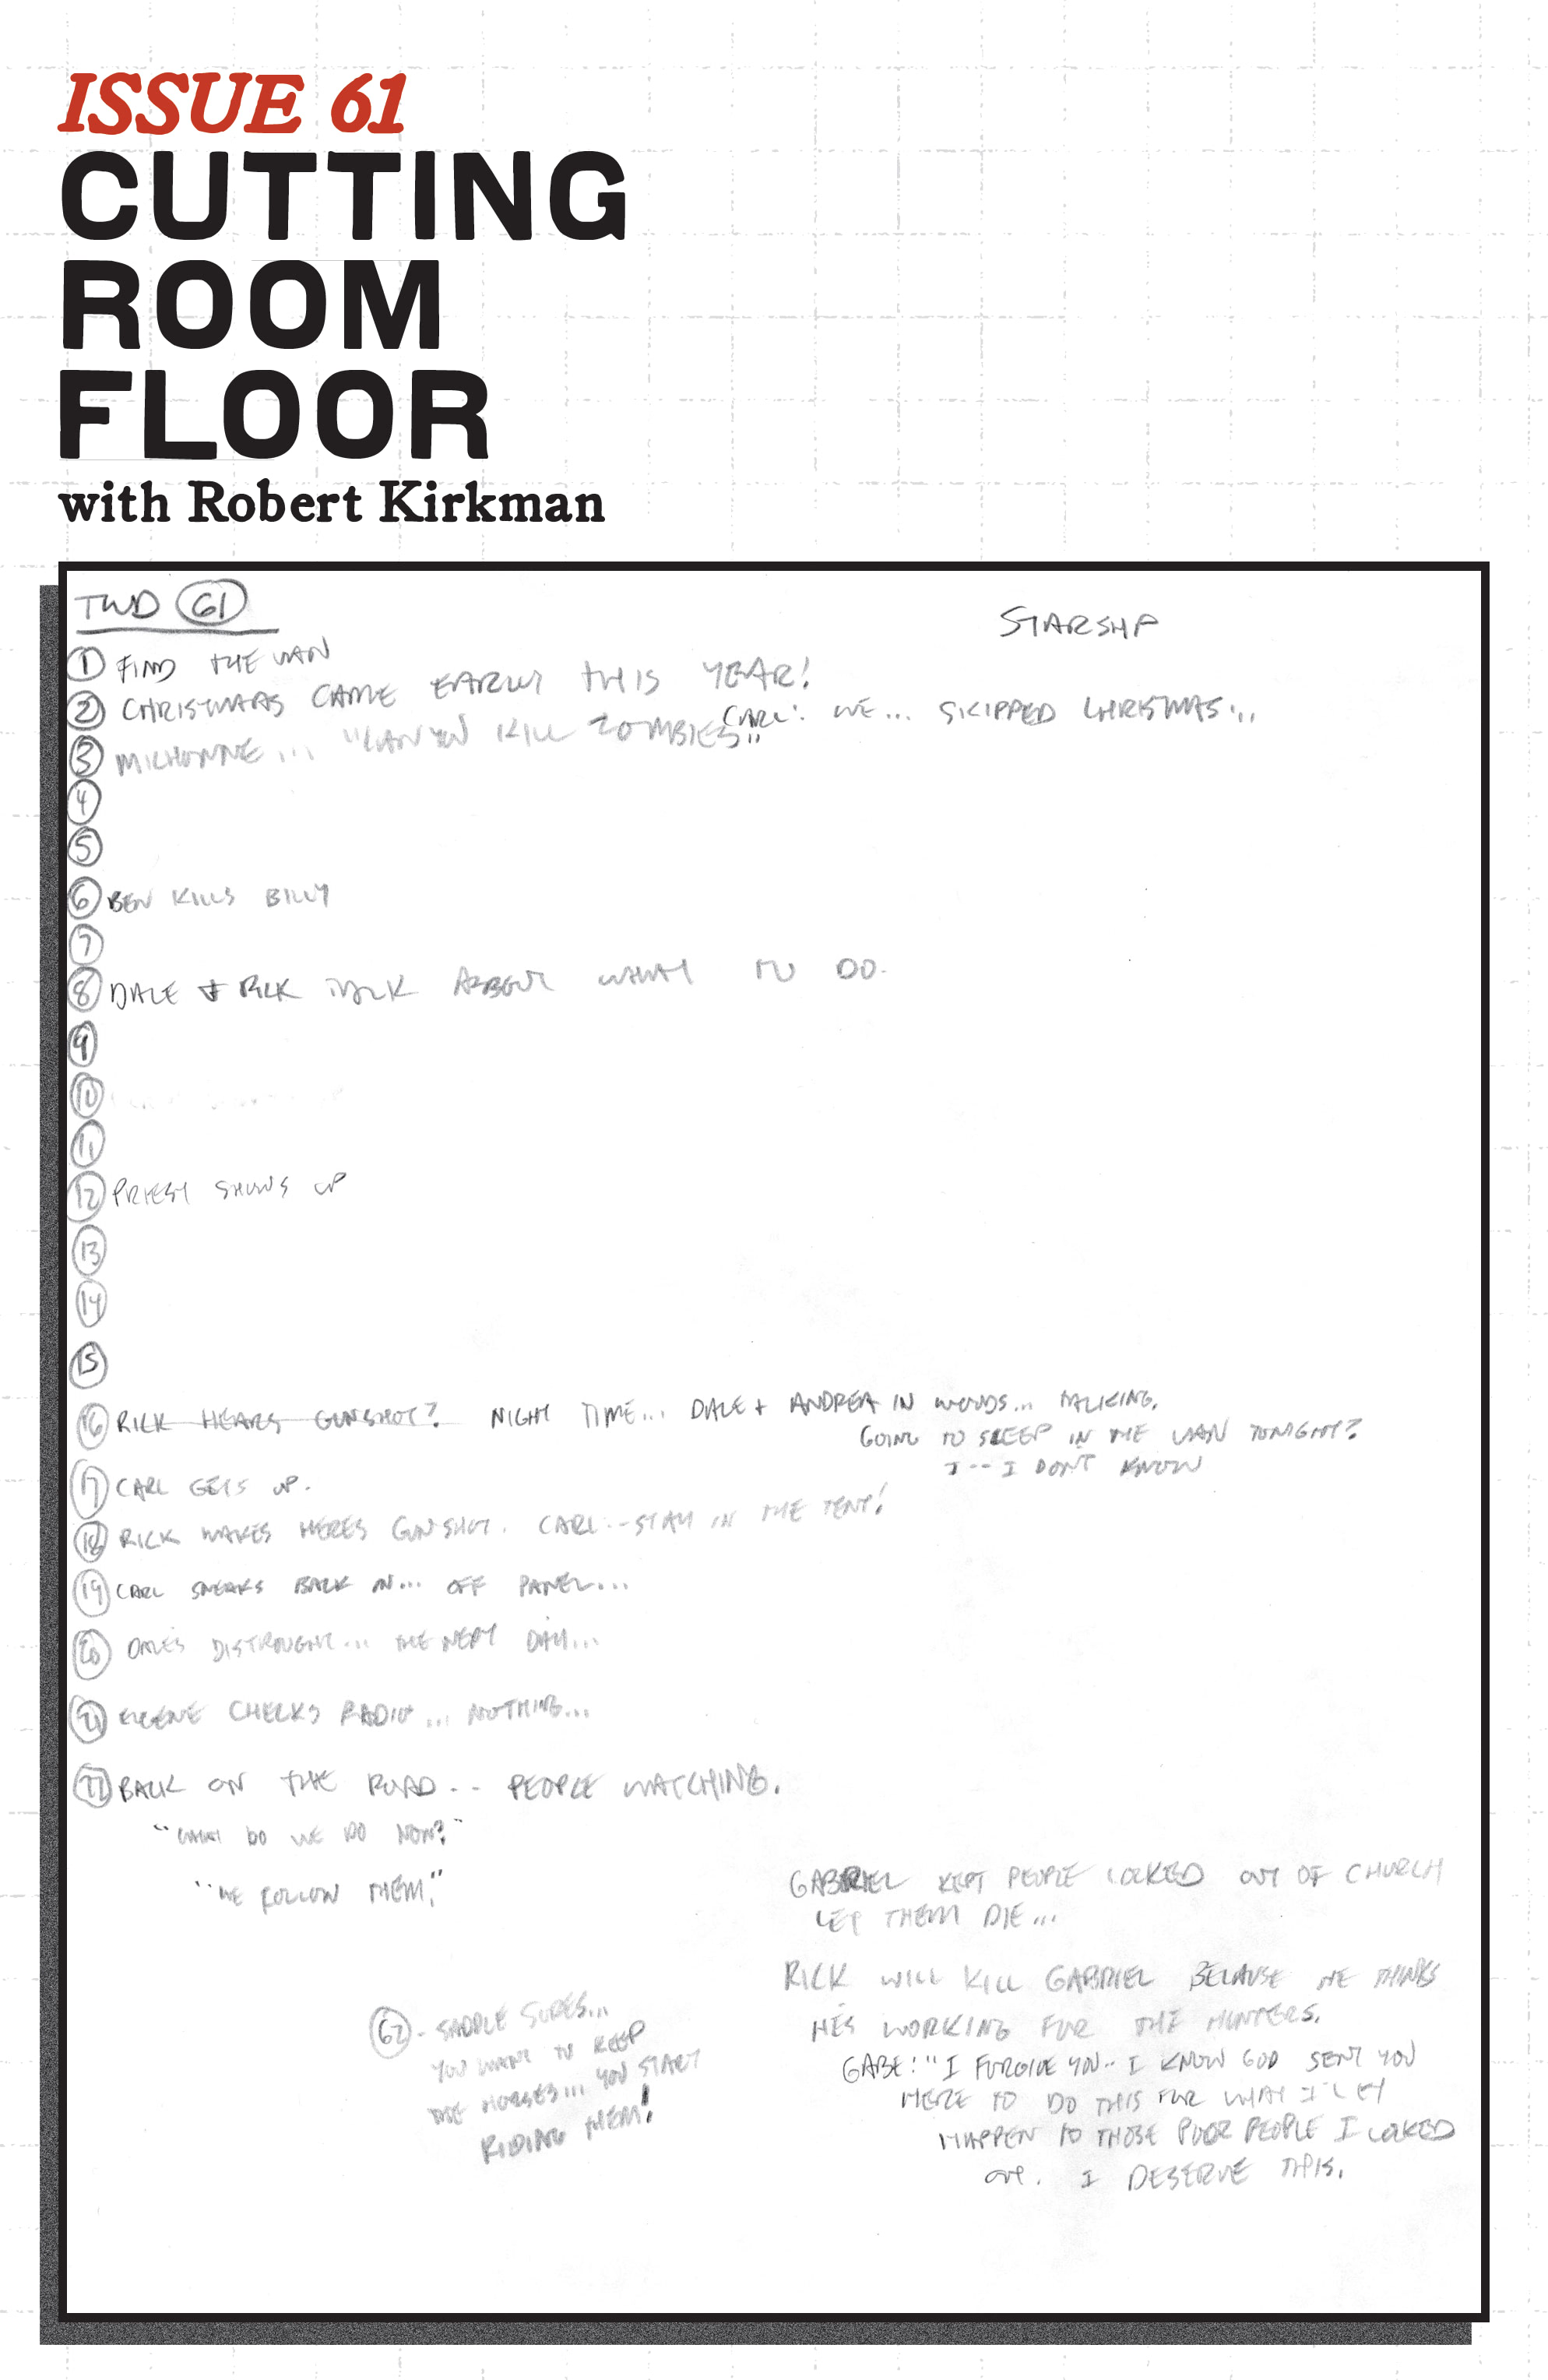 ISSUE 61
CUTTING
ROOM
FLOOR
with Robert Kirkman
TWD 61
STARSHIP
1 FIND THE VAN
2 CHRISTMAS CAME EARLY THIS YEAR!
CARL: WE... SKIPPED CHRISTMAS...
3 MICHONNE... "CAN YOU KILL ZOMBIES..
4
5
6 BEN KILLS BILLY
7
8 DALE + RICK TALK ABOUT WHAT TO DO.
9
10
11
12 PRIEST SHOWS UP
13
14
15
16 RICK HEARS GUNSHOT? NIGHT TIME... DALE + ANDREA IN WOODS... TALKING.
GOING TO SLEEP IN THE VAN TONIGHT?
I -- I DON'T KNOW
17 CARL GETS UP.
18 RICK WAKES HERES GUNSHOT. CARL -- STAY IN THE TENT!
19 CARL SNEAKS BACK IN... OFF PANEL...
20 DALE'S DISTROUGHT... THE NEXT DAY...
21 EUGENE CHECKS RADIO... NOTHING...
22 BACK ON THE ROAD -- PEOPLE WATCHING.
"WHAT DO WE DO NOW?"
"WE FOLLOW THEM."
GABRIEL KEPT PEOPLE LOCKED OUT OF CHURCH
LET THEM DIE...
RICK WILL KILL GABRIEL BECAUSE HE THINKS
HE'S WORKING FOR THE HUNTERS.
GABE: "I FORGIVE YOU.. I KNOW GOD SENT YOU
HERE TO DO THIS FOR WHAT I LET
HAPPEN TO THOSE POOR PEOPLE I LOCKED
OUT. I DESERVE THIS.
62 - SADDLE SORES...
YOU WANT TO KEEP
THE HORSES... YOU START
RIDING THEM!